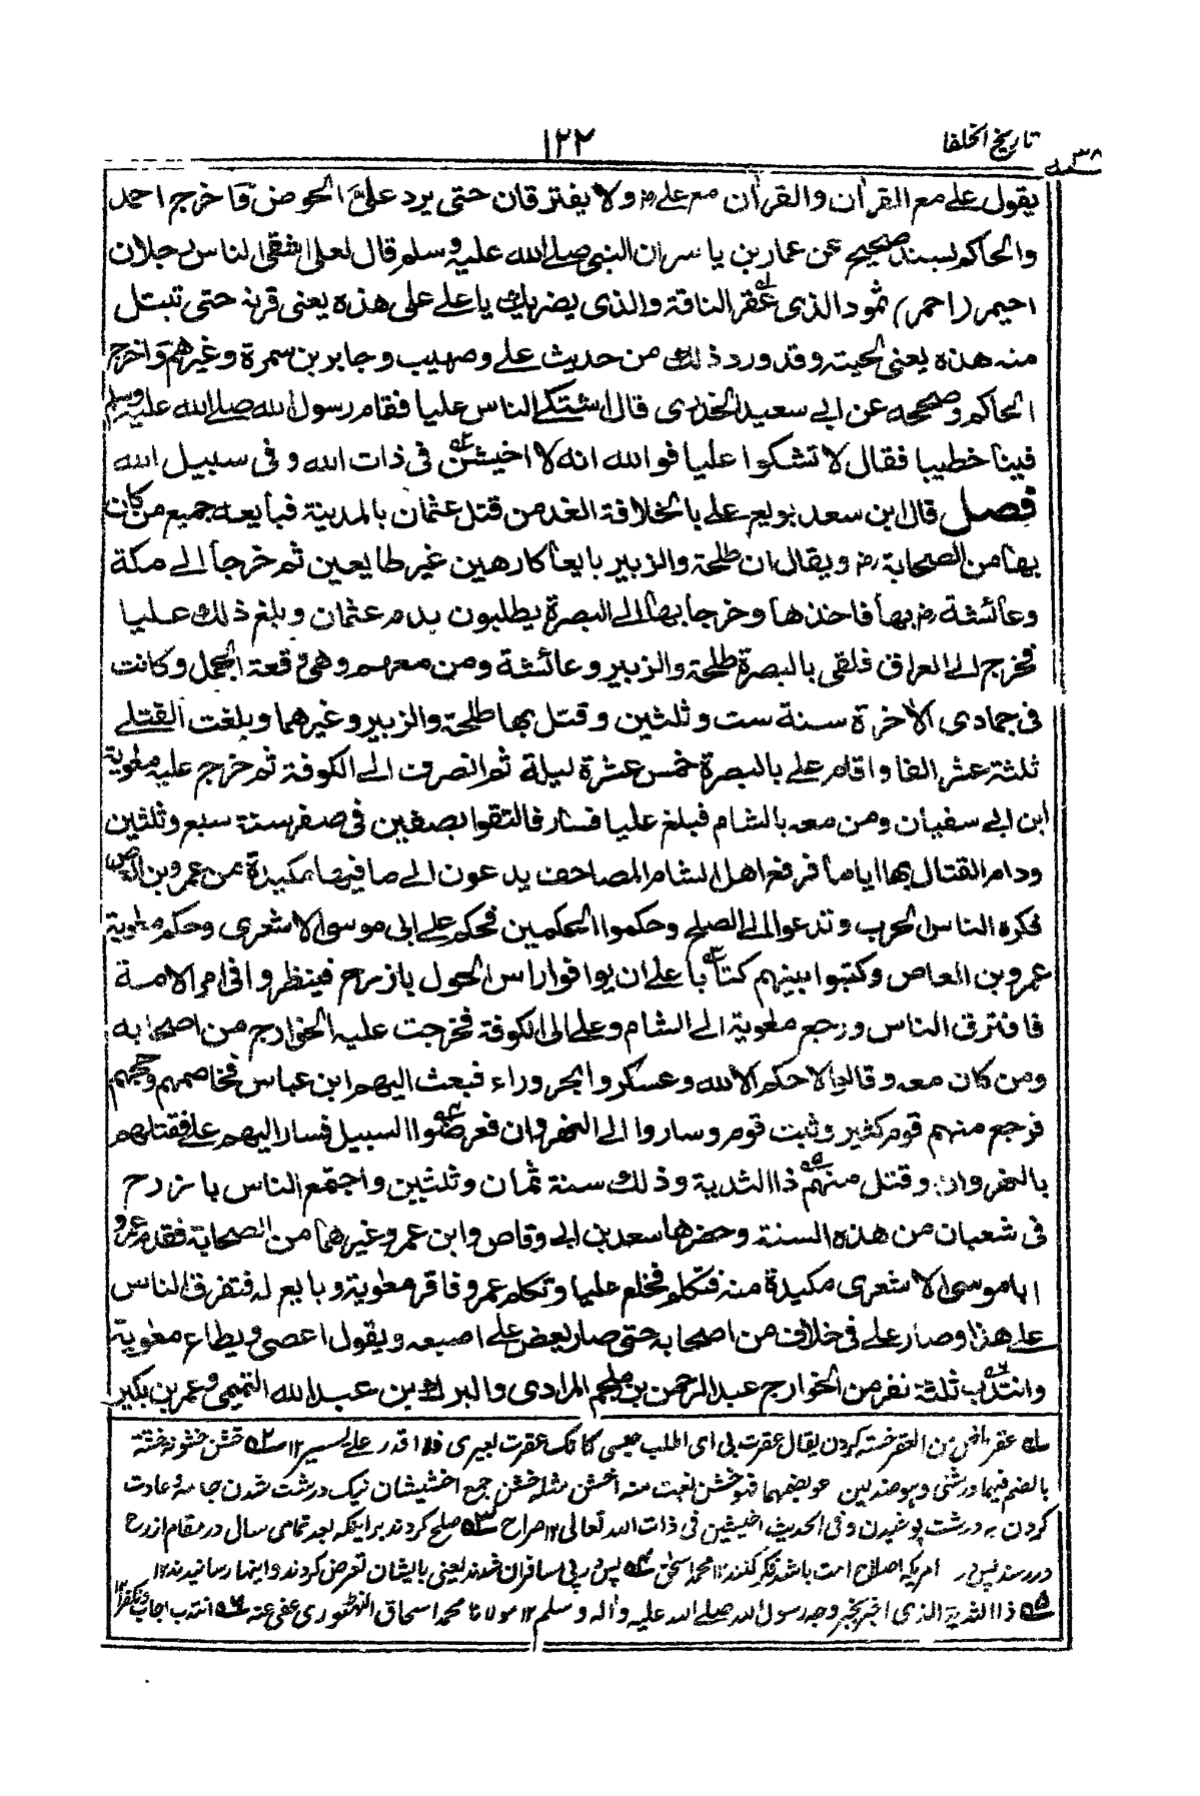 تاريخ الخلفا
١٢٢
يقول علي مع القرأن والقرأن مع علي رض ولا يفترقان حتى يرد على الحوض وأخرج احمد
والحاكم بسند صحيح عن عمار بن ياسر ان النبي صلے الله عليه وسلم قال لعلى اشقى الناس رجلان
احيمر (احمر) ثمود الذي عقر الناقة والذي يضربك يا علے على هذه يعنى قرنه حتى تبتل
منه هذه يعنى لحيته وقد ورد ذلك من حديث علے وصهيب وجابر بن سمرة وغيرهم وأخرج
الحاكم وصححه عن ابى سعيد الخدرى قال اشتكے الناس عليا فقام رسول الله صلے الله عليه وسلم
فينا خطيبا فقال لا تشكوا عليا فوالله انه لا خيشن في ذات الله و في سبيل الله
فصل قال ابن سعد بويع علے بالخلافة الغد من قتل عثمان بالمدينة فبايعه جميع من كان
بها من الصحابة رض ويقال ان طلحة والزبير بايعا كارهين غير طايعين ثم خرجا الے مكة
وعائشة رض بها فاخذها وخرجا بها الے البصرة يطلبون بدم عثمان وبلغ ذلك عليا
فخرج الے العراق فلقى بالبصرة طلحة والزبير وعائشة ومن معهم وهى وقعة الجمل وكانت
في جمادى الأخرة سنة ست وثلثين وقتل بها طلحة والزبير وغيرهما وبلغت القتلے
ثلثة عشر الفا واقام علے بالبصرة خمس عشرة ليلة ثم انصرف الے الكوفة ثم خرج عليه معوية
ابن ابى سفيان ومن معه بالشام فبلغ عليا فسار فالتقوا بصفين في صفر سنة سبع وثلثين
ودام القتال بها اياما فرفع اهل الشام المصاحف يدعون الے ما فيها مكيدة من عمرو بن العاص
فكره الناس الحرب وتدعوا الے الصلح وحكموا الحكمين فحكم علے ابى موسى الاشعرى وحكم معوية
عمرو بن العاص وكتبوا بينهم كتابا علے ان يوافوا راس الحول باذرح فينظروا في امر الامة
فافترق الناس ورجع معوية الے الشام وعلے الى الكوفة فخرجت عليه الخوارج من اصحابه
ومن كان معه وقالوا لا حكم الا لله وعسكروا بحروراء فبعث اليهم ابن عباس فخاصمهم وحجهم
فرجع منهم قوم كثير وثبت قوم وساروا الے النهروان فعرضوا السبيل فسار اليهم علے فقتلهم
بالنهروان وقتل منهم ذا الثدية وذلك سنة ثمان وثلثين واجتمع الناس باذرح
في شعبان من هذه السنة وحضرها سعد بن ابى وقاص وابن عمر وغيرهما من الصحابة فقدم عمرو
ابا موسى الاشعرى مكيدة منه فتكلم فخلع عليا وتكلم عمرو فاقر معوية وبايع له فتفرق الناس
علے هذا وصار علے في خلاف من اصحابه حتى صار يعض علے اصبعه ويقول اعصى ويطاع معوية
وانتدب ثلثة نفر من الخوارج عبدالرحمن بن ملجم المرادى والبرك بن عبدالله التميمى وعمرو بن بكير
عقر ماض من العقر خسته كردن يقال عقرت بى اى اطلت حبسى كانك عقرت بعيرى فلا اقدر علے السير ١٢ خشن خشونة خشنة
بالضم فيهما درشتى وهو ضد لين فهو خشن لغت منه اخشن مثله خشن جمع اخشيشان نيك درشت شدن جامه وعادت
كردن به درشت پوشيدن وفي الحديث اخيشن في ذات الله تعالى ١٢ صراح صلح كردند بر اينكه بعد تمامى سال در مقام اذرح
در رسند پس امريكه اصلاح امت باشد فكر كنند ١٢ محمد اسحٰق پس در پى مسافران شدند يعنى بايشان تعرض كردند وايذا رسانيدند ١٢
ذا الثدية الذى اخبر بخبر وجه رسول الله صلے الله عليه وأله وسلم ١٢ مولانا محمد اسحاق عفى عنه انتدب اجاب